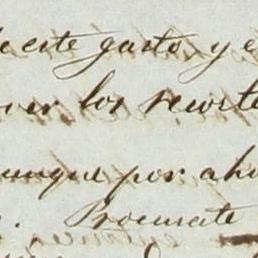 este gasto, y e
ver los resorte
aunque por aho
Procurate